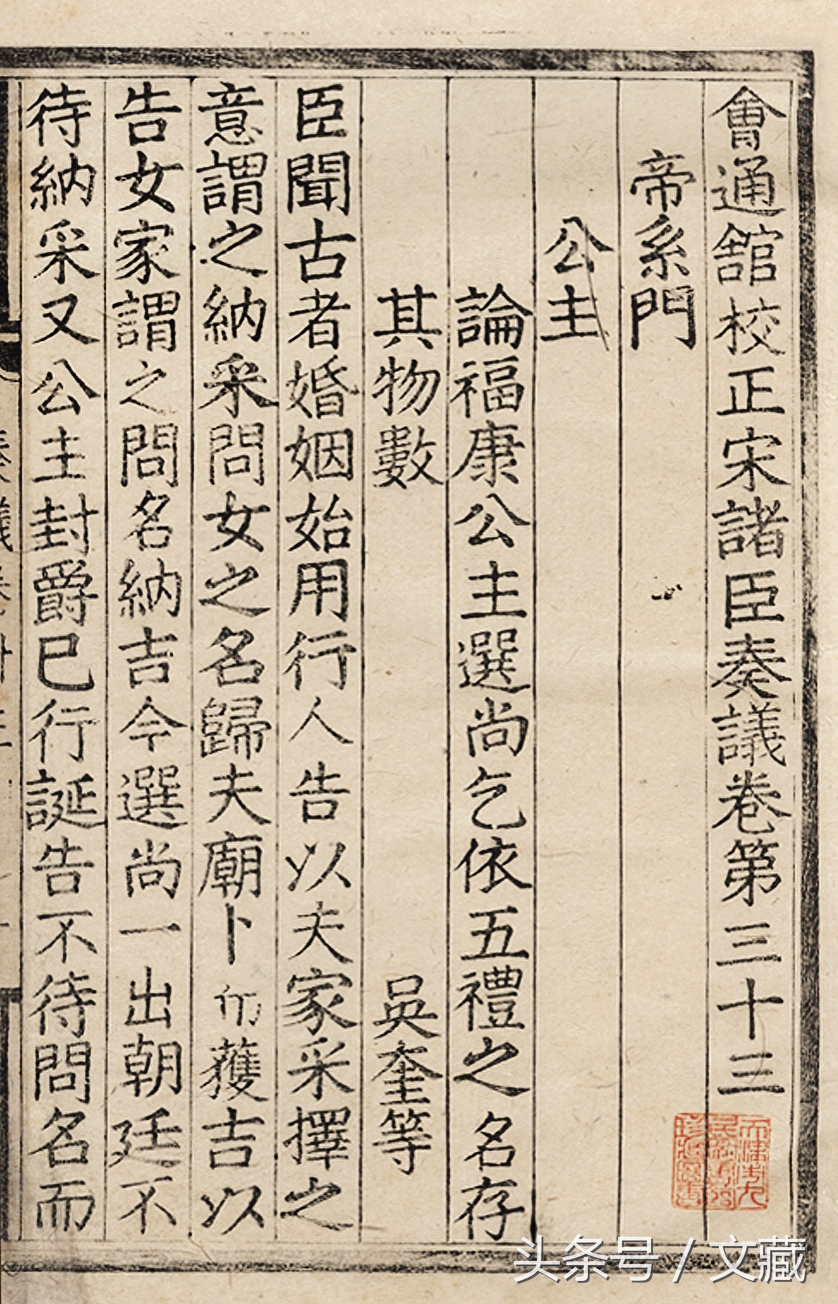 會通舘校正宋諸臣奏議卷第三十三
帝系門
公主
論福康公主選尚乞依五禮之名存
其物數　吳奎等
臣聞古者婚姻始用行人告以夫家采擇之
意謂之納采問女之名歸夫廟卜而獲吉以
告女家謂之問名納吉今選尚一出朝廷不
待納采又公主封爵已行誕告不待問名而
头条号 / 文藏